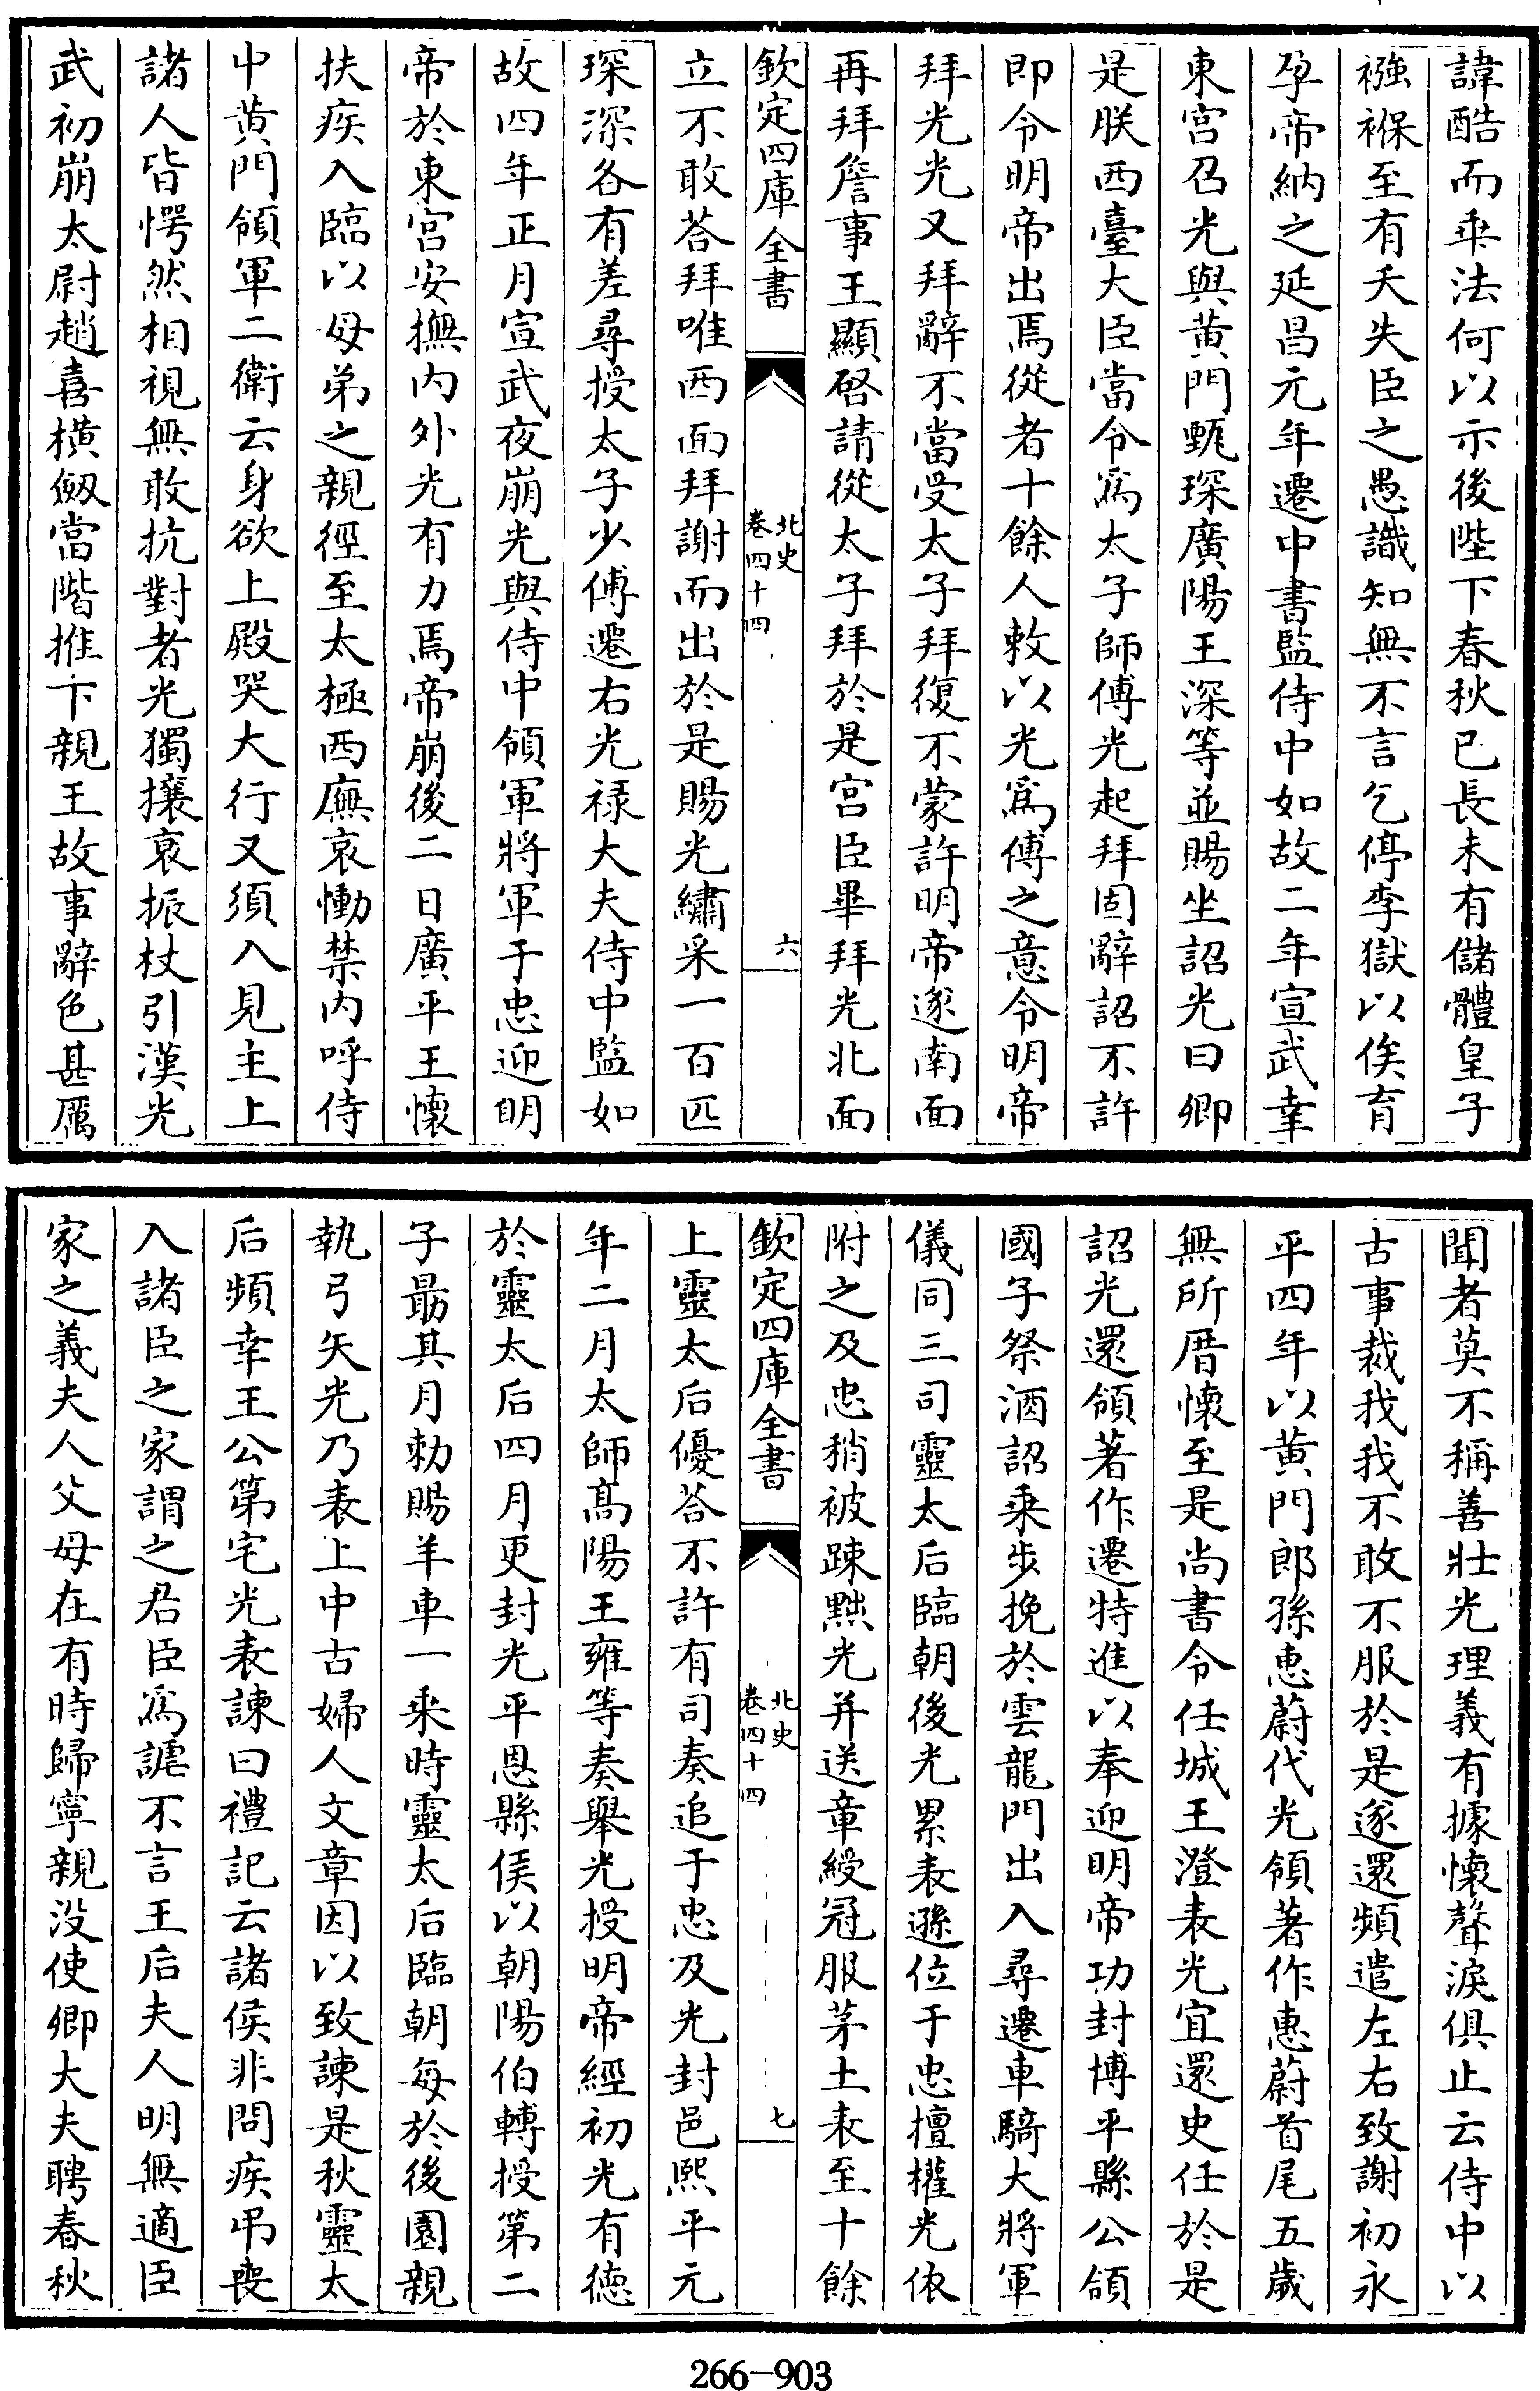 諱酷而乖法何以示後陛下春秋已長未有儲體皇子
襁褓至有夭失臣之愚識知無不言乞停李獄以俟育
孕帝納之延昌元年遷中書監侍中如故二年宣武幸
東宮召光與黄門甄琛廣陽王深等並賜坐詔光曰卿
是朕西臺大臣當令爲太子師傅光起拜固辭詔不許
即令明帝出焉從者十餘人敕以光爲傅之意令明帝
拜光光又拜辭不當受太子拜復不蒙許明帝遂南面
再拜詹事王顯啓請從太子拜於是宮臣畢拜光北面
欽定四庫全書
北史
卷四十四
六
立不敢荅拜唯西面拜謝而出於是賜光繡采一百匹
琛深各有差尋授太子少傅遷右光禄大夫侍中監如
故四年正月宣武夜崩光與侍中領軍將軍于忠迎明
帝於東宮安撫内外光有力焉帝崩後二日廣平王懷
扶疾入臨以母弟之親徑至太極西廡哀慟禁内呼侍
中黄門領軍二衛云身欲上殿哭大行又須入見主上
諸人皆愕然相視無敢抗對者光獨攘衰振杖引漢光
武初崩太尉趙喜橫劔當階推下親王故事辭色甚厲
聞者莫不稱善壯光理義有據懷聲淚俱止云侍中以
古事裁我我不敢不服於是遂還頻遣左右致謝初永
平四年以黄門郎孫惠蔚代光領著作惠蔚首尾五歲
無所厝懷至是尚書令任城王澄表光宜還史任於是
詔光還領著作遷特進以奉迎明帝功封博平縣公領
國子祭酒詔乗步挽於雲龍門出入尋遷車騎大將軍
儀同三司靈太后臨朝後光累表遜位于忠擅權光依
附之及忠稍被踈黜光并送章綬冠服茅土表至十餘
欽定四庫全書
北史
卷四十四
七
上靈太后優荅不許有司奏追于忠及光封邑熙平元
年二月太師髙陽王雍等奏舉光授明帝經初光有德
於靈太后四月更封光平恩縣侯以朝陽伯轉授第二
子勗其月勑賜羊車一乘時靈太后臨朝每於後園親
執弓矢光乃表上中古婦人文章因以致諫是秋靈太
后頻幸王公第宅光表諫曰禮記云諸侯非問疾弔喪
入諸臣之家謂之君臣爲謔不言王后夫人明無適臣
家之義夫人父母在有時歸寧親没使卿大夫聘春秋
266-903